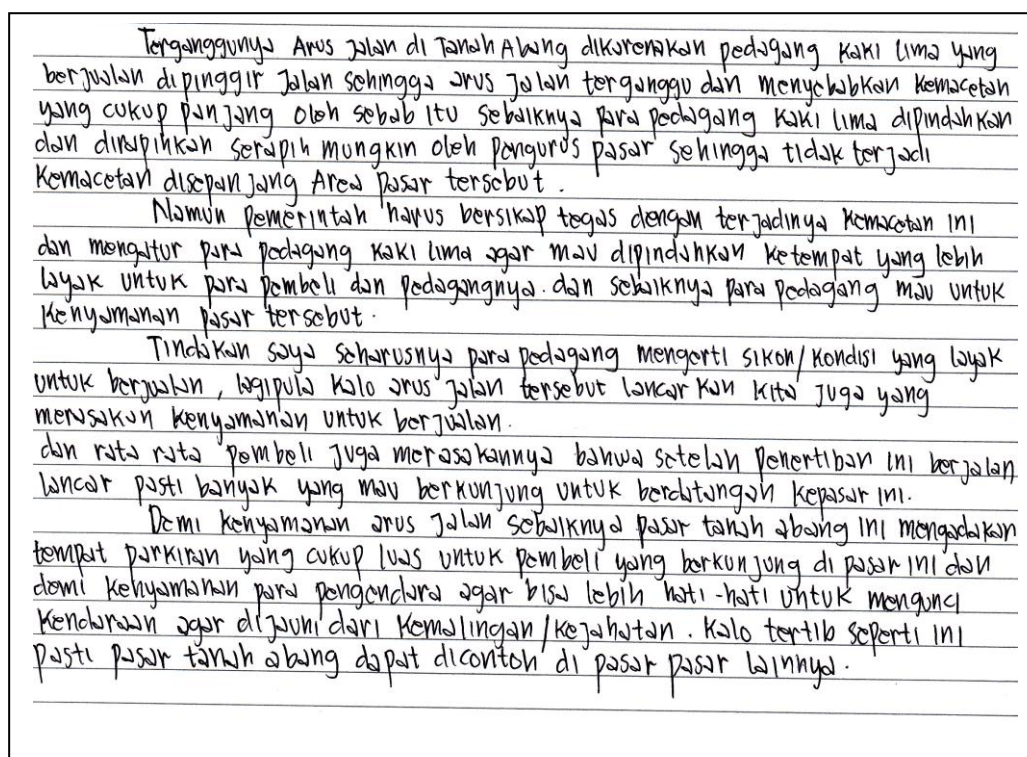 Terganggunya Arus jalan di Tanah Abang dikarenakan pedagang kaki lima yang
berjualan dipinggir jalan sehingga arus jalan terganggu dan menyebabkan kemacetan
yang cukup panjang oleh sebab itu sebaiknya para pedagang kaki lima dipindahkan
dan dirapihkan serapih mungkin oleh pengurus pasar sehingga tidak terjadi
kemacetan disepanjang Area pasar tersebut.
Namun pemerintah harus bersikap tegas dengan terjadinya kemacetan ini
dan mengatur para pedagang kaki lima agar mau dipindahkan ketempat yang lebih
layak untuk para pembeli dan pedagangnya. dan sebaiknya para pedagang mau untuk
kenyamanan pasar tersebut.
Tindakan saya seharusnya para pedagang mengerti sikon/kondisi yang layak
untuk berjualan, lagipula kalo arus jalan tersebut lancar kan kita juga yang
merasakan kenyamanan untuk berjualan.
dan rata rata pembeli juga merasakannya bahwa setelah penertiban ini berjalan
lancar pasti banyak yang mau berkunjung untuk berdatangan kepasar ini.
Demi kenyamanan arus jalan sebaiknya pasar tanah abang ini mengadakan
tempat parkiran yang cukup luas untuk pembeli yang berkunjung di pasar ini dan
demi kenyamanan para pengendara agar bisa lebih hati-hati untuk mengunci
kendaraan agar dijauhi dari kemalingan/kejahatan. Kalo tertib seperti ini
pasti pasar tanah abang dapat dicontoh di pasar pasar lainnya.